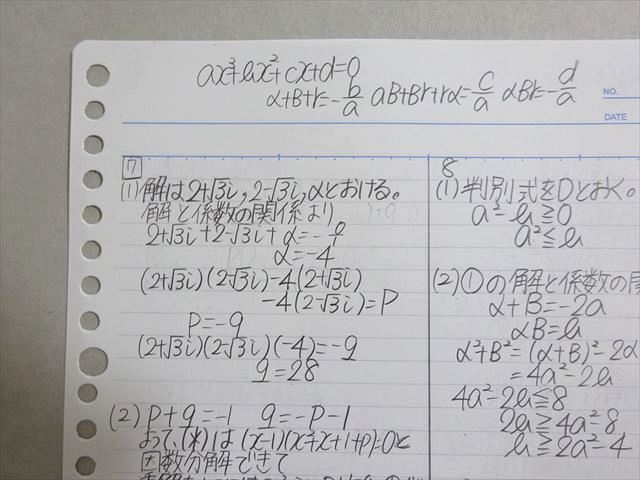 ax³+bx²+cx+d=0
α+β+γ=-b/a αβ+βγ+γα=c/a αβγ=-d/a
NO.
DATE
7
(1) 解は2+√3i, 2-√3i, αとおける。
解と係数の関係より
2+√3i+2-√3i+α=
α=-4
(2+√3i)(2-√3i)-4(2+√3i)
-4(2-√3i)=P
P=-9
(2+√3i)(2-√3i)(-4)=-q
q=28
(2) P+q=-1 q=-P-1
よって、(*)は(x-1)(x²+x+1+p)=0と
因数分解できて
8
(1) 判別式をDとおく。
a²-b≧0
a²≦b
(2) ①の解と係数の関
α+β=-2a
αβ=b
α²+β²=(α+β)²-2α
=4a²-2b
4a²-2b≦8
2b≧4a²-8
b≧2a²-4